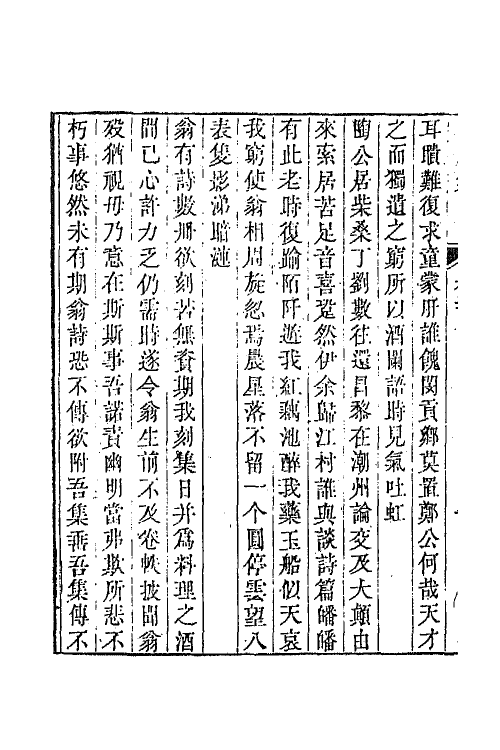 耳聵難復求童蒙肝誰餽閔貢鄉莫置鄭公何哉天才
之而獨遺之窮所以酒闌語時見氣吐虹
陶公居柴桑丁劉數往還昌黎在潮州論交及大顛由
來索居苦足音喜跫然伊余歸江村誰與談詩篇皤皤
有此老時復踰陌阡遊我紅藕池醉我藥玉船似天哀
我窮使翁相周旋忽焉晨星落不留一个圓停雲望八
表隻影涕暗漣
翁有詩數冊欲刻苦無資期我刻集日并為料理之酒
間已心許力乏仍需時遂令翁生前不及卷帙披聞翁
歿猶視毋乃意在斯斯事吾諾責幽明當弗欺所悲不
朽事悠然未有期翁詩恐不傳欲附吾集乖吾集傳不